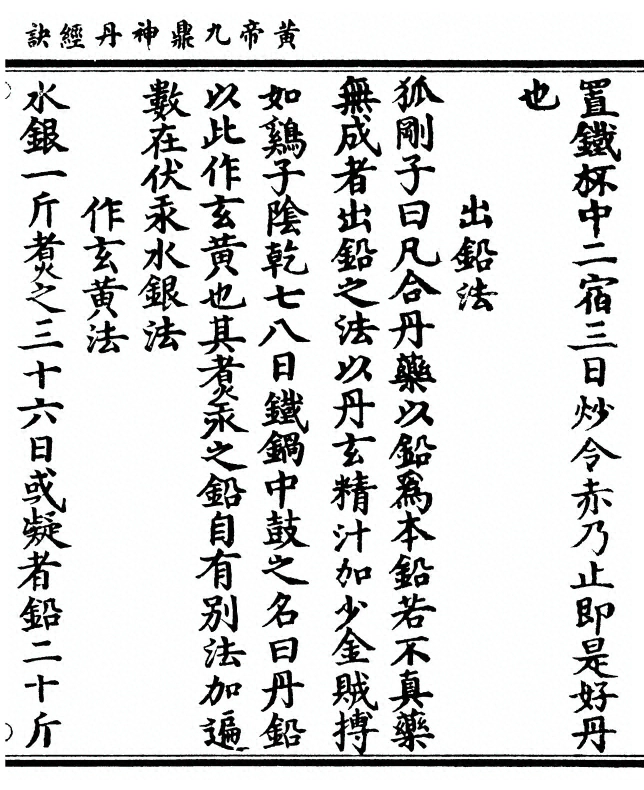 黃帝九鼎神丹經訣
置鐵杯中二宿三日炒令赤乃止即是好丹
也
出鉛法
狐剛子曰凡合丹藥以鉛為本鉛若不真藥
無成者出鉛之法以丹玄精汁加少金賊摶
如鷄子陰乾七八日鐵鍋中鼓之名曰丹鉛
以此作玄黃也其煑汞之鉛自有別法加遍
數在伏汞水銀法
作玄黃法
水銀一斤煑之三十六日或凝者鉛二十斤